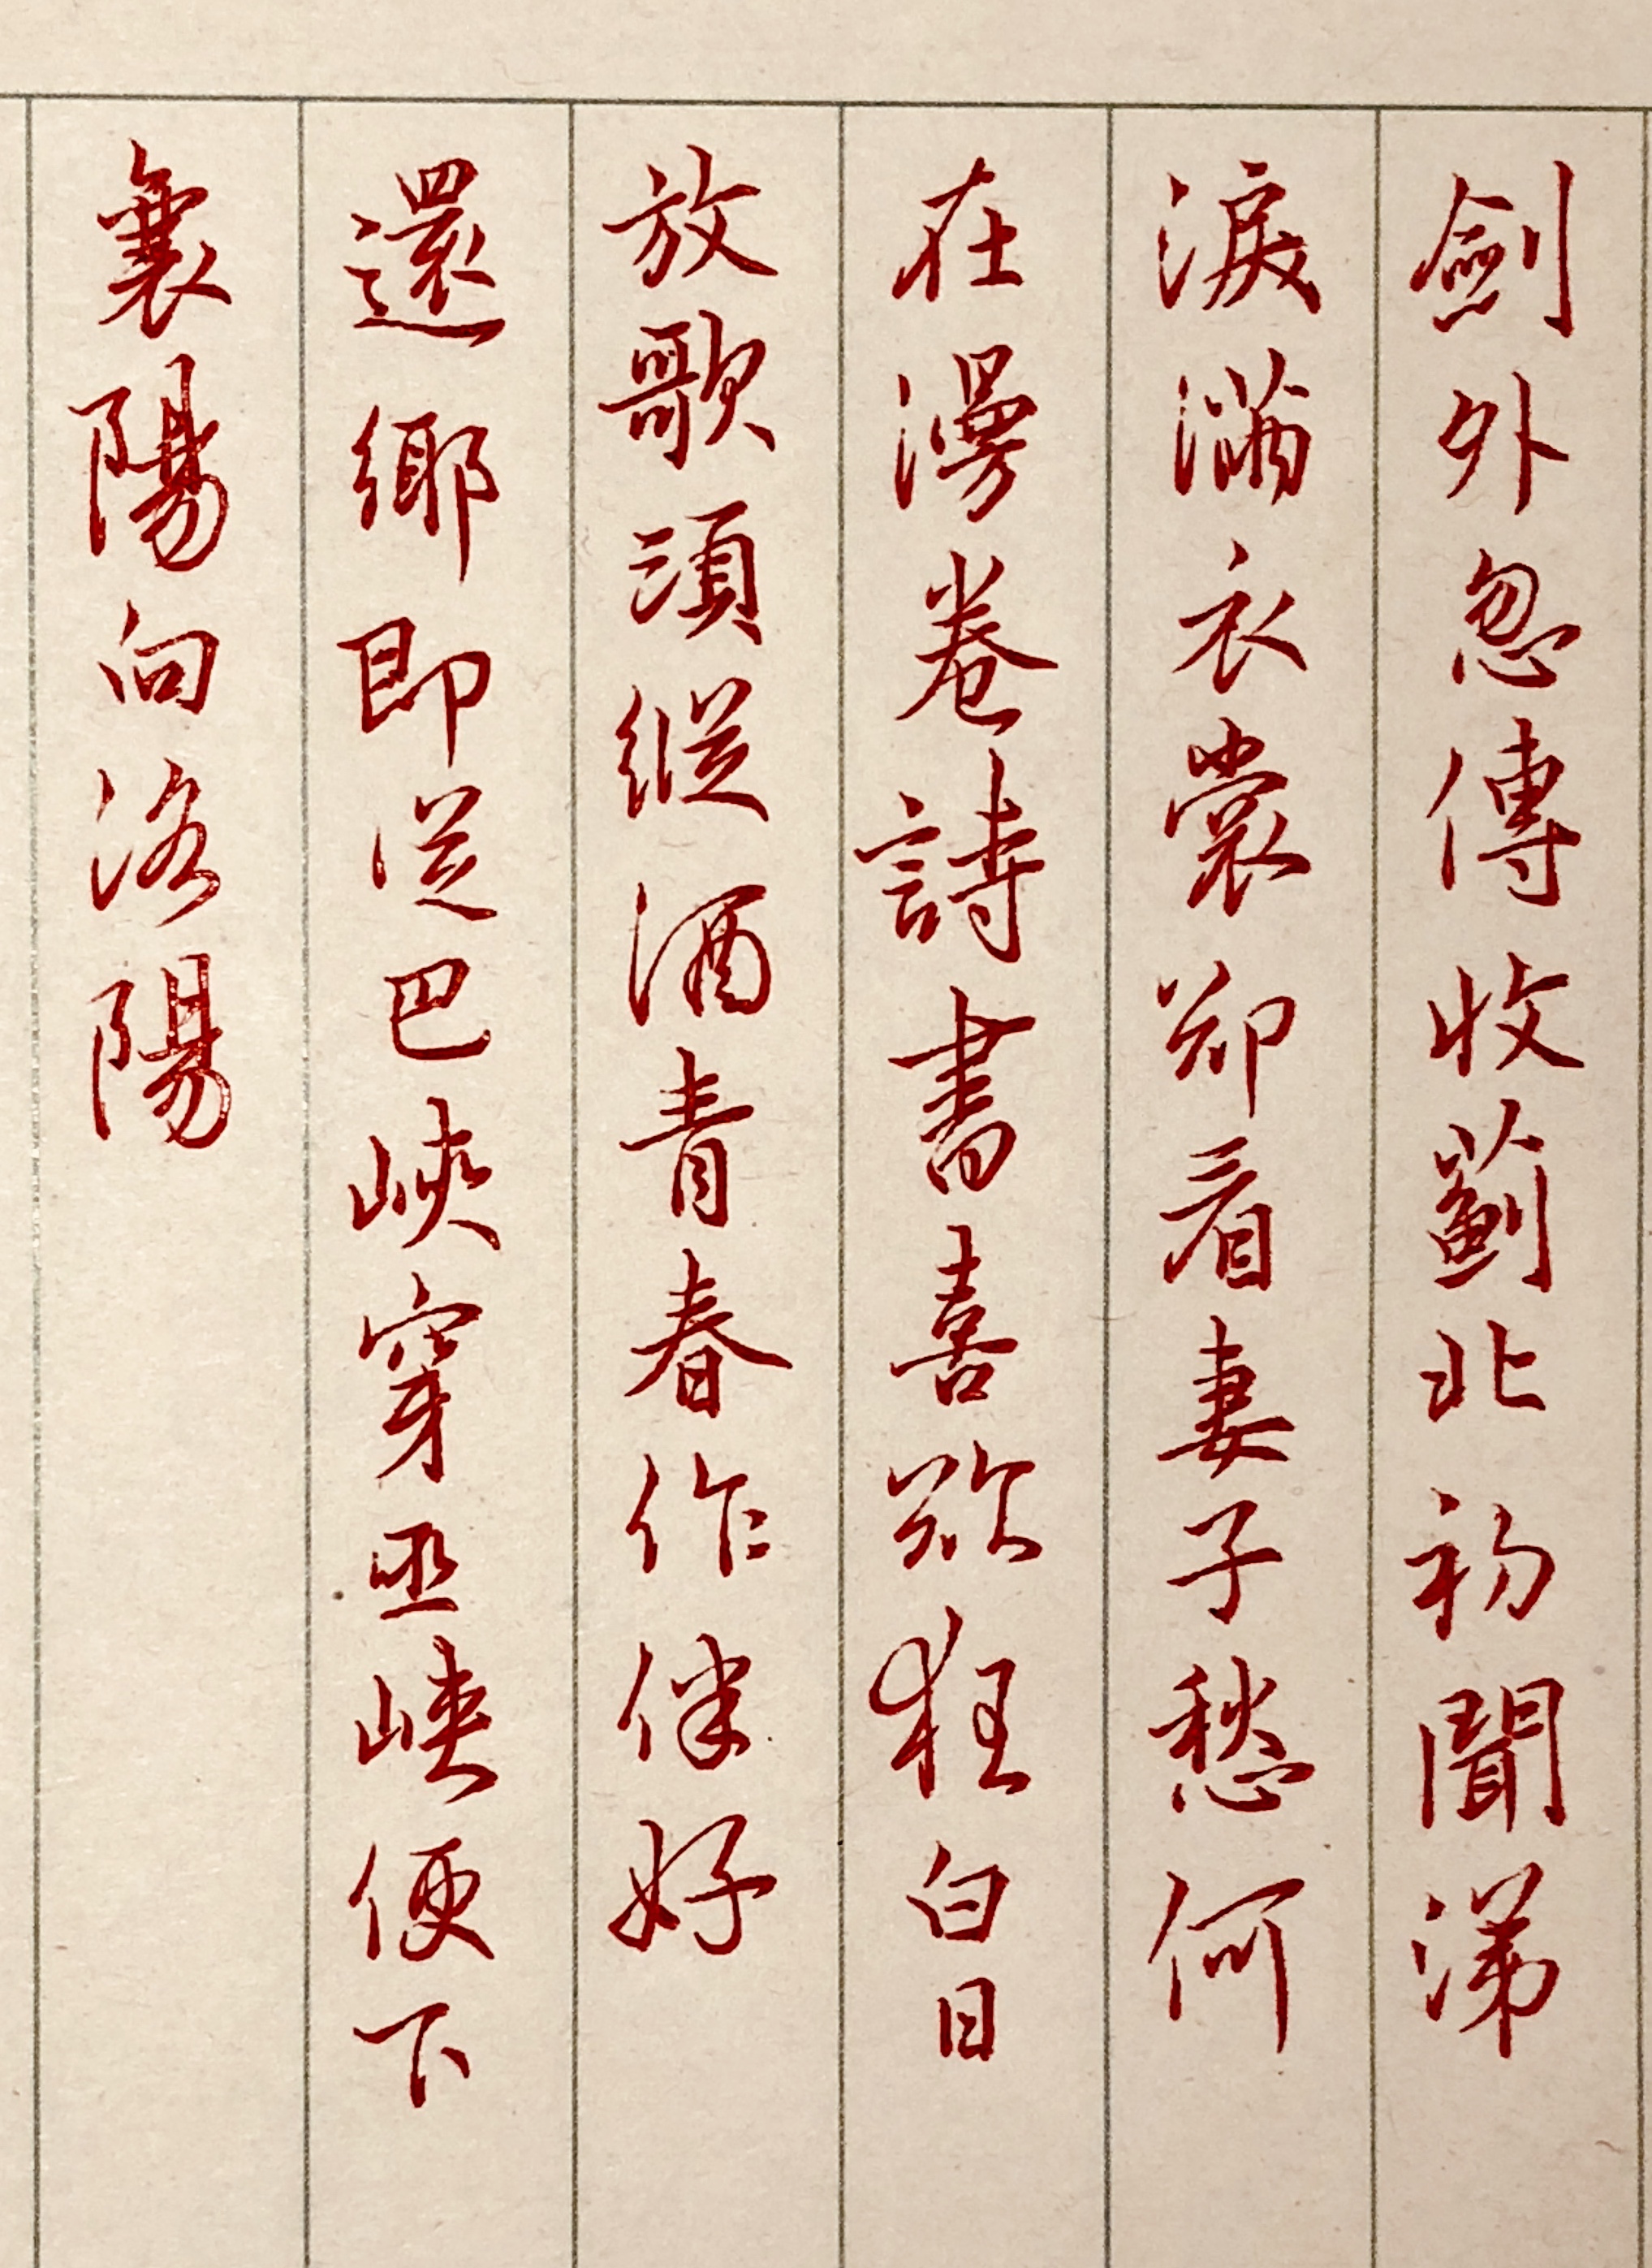 劍外忽傳收薊北初聞涕
淚滿衣裳却看妻子愁何
在漫卷詩書喜欲狂白日
放歌須縱酒青春作伴好
還鄉即從巴峽穿巫峽便下
襄陽向洛陽